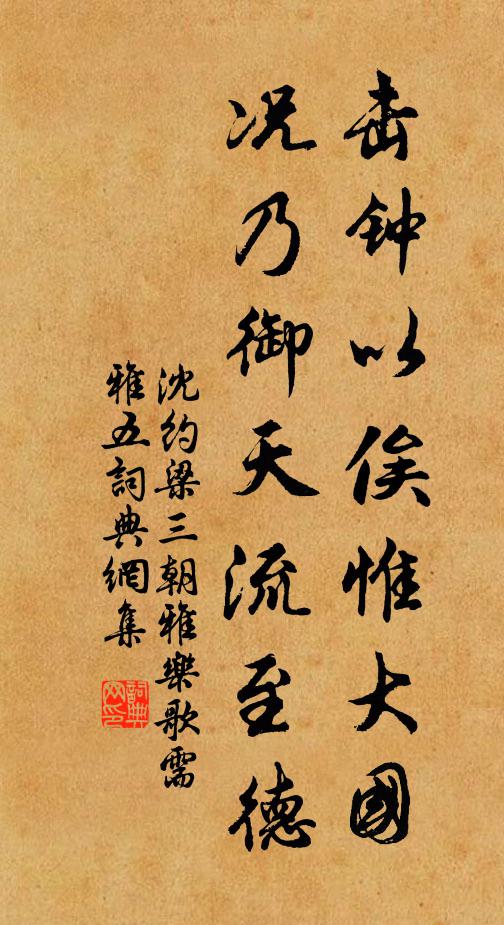 击钟以俟惟大國
况乃御天流至德
沈约梁三朝雅樂歌需
雅五詞典網集
詞典网印